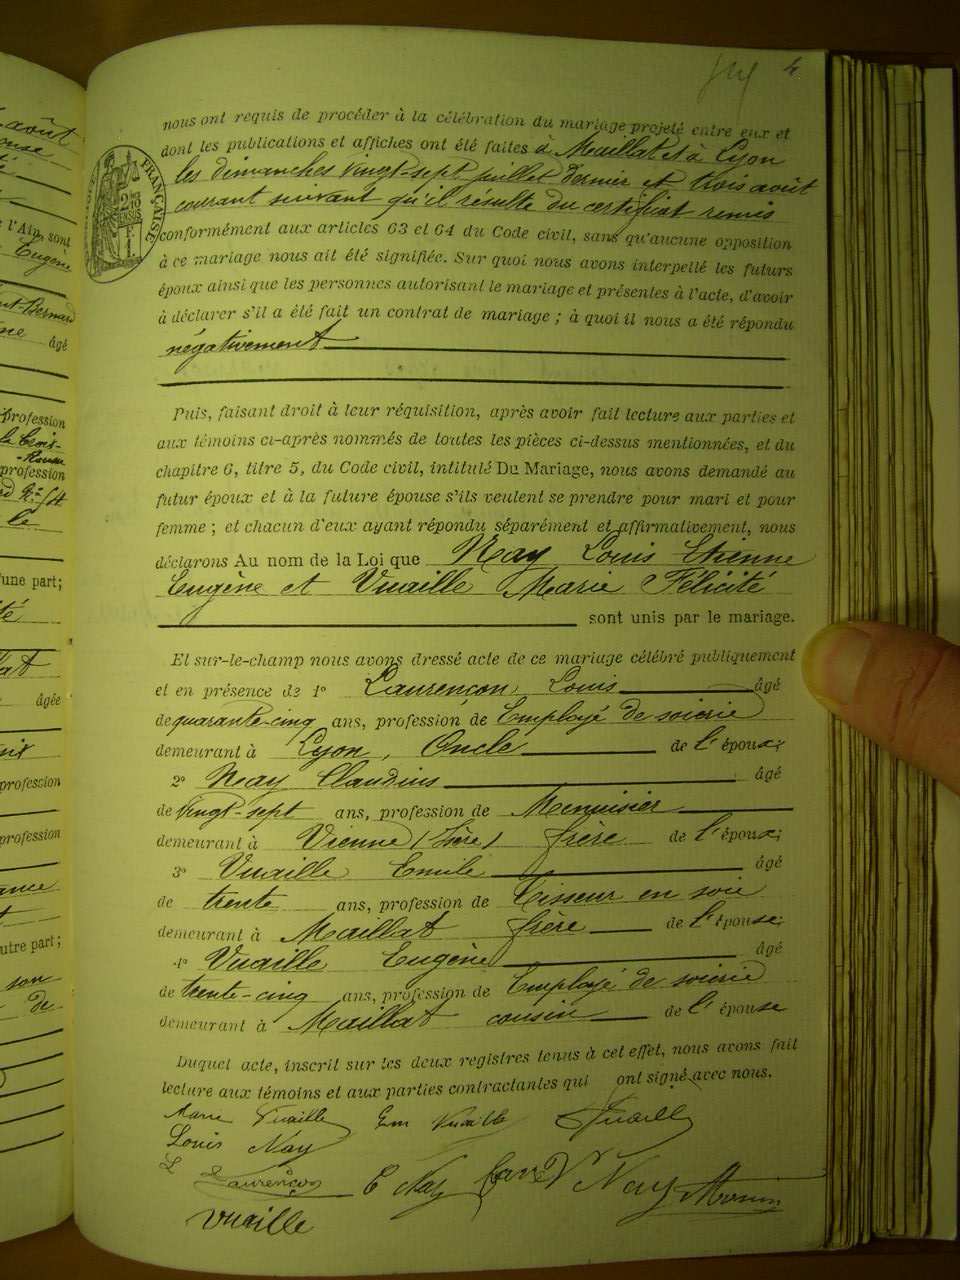 4
nous ont requis de procéder à la célébration du mariage projeté entre eux et
dont les publications et affiches ont été faites à Maillat et à Lyon
les dimanches vingt-sept juillet dernier et trois août
courant suivant qu'il résulte du certificat remis
conformément aux articles 63 et 64 du Code civil, sans qu'aucune opposition
à ce mariage nous ait été signifiée. Sur quoi nous avons interpellé les futurs
époux ainsi que les personnes autorisant le mariage et présentes à l'acte, d'avoir
à déclarer s'il a été fait un contrat de mariage ; à quoi il nous a été répondu
négativement
Puis, faisant droit à leur réquisition, après avoir fait lecture aux parties et
aux témoins ci-après nommés de toutes les pièces ci-dessus mentionnées, et du
chapitre 6, titre 5, du Code civil, intitulé Du Mariage, nous avons demandé au
futur époux et à la future épouse s'ils veulent se prendre pour mari et pour
femme ; et chacun d'eux ayant répondu séparément et affirmativement, nous
déclarons Au nom de la Loi que Nay Louis Etienne
Eugène et Vuaille Marie Félicité
sont unis par le mariage.
Et sur-le-champ nous avons dressé acte de ce mariage célébré publiquement
et en présence de 1° Laurençon, Louis âgé
de quarante-cinq ans, profession de Employé de soierie
demeurant à Lyon, Oncle de l'époux;
2° Nay Claudius âgé
de vingt-sept ans, profession de Menuisier
demeurant à Vienne (Isère) frère de l'époux;
3° Vuaille Emile âgé
de trente ans, profession de Tisseur en soie
demeurant à Maillat frère de l'épouse;
4° Vuaille Eugène âgé
de trente-cinq ans, profession de Employé de soierie
demeurant à Maillat cousin de l'épouse
Duquel acte, inscrit sur les deux registres tenus à cet effet, nous avons fait
lecture aux témoins et aux parties contractantes qui ont signé avec nous.
Marie Vuaille Em Vuaille Vuaille
Louis Nay
L Laurençon C Nay Nay
Vuaille